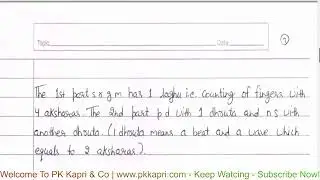 Topic
Date
7
The 1st part s r g m has 1 laghu i.e. counting of fingers with
4 aksharas. The 2nd part p d with 1 dhruta and n s with
another dhruta. (1 dhruta means a beat and a wave which
equals to 2 aksharas).
Welcome To PK Kapri & Co | www.pkkapri.com - Keep Watcing - Subscribe Now!